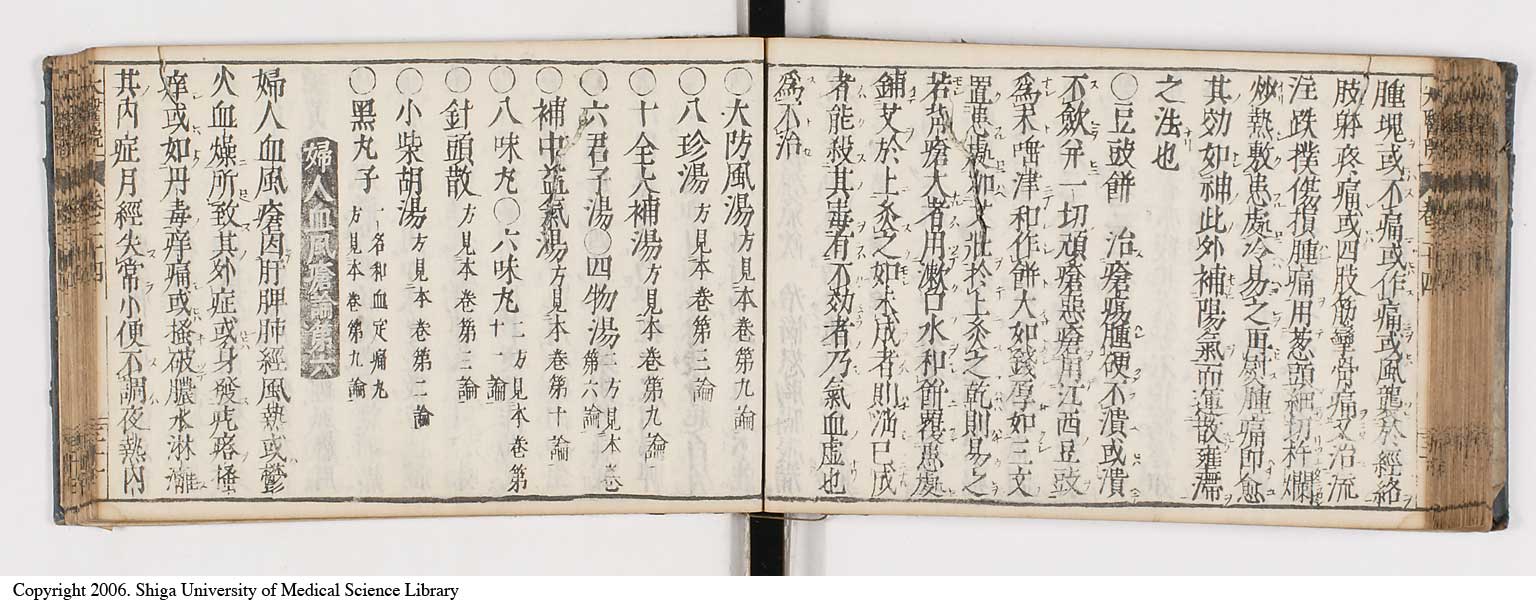 腫塊或不痛或作痛或風襲於經絡
肢躰疼痛或四肢筋攣骨痛又治流
注跌撲傷損腫痛用葱頭細切杵爛
炒熱敷患處冷易之再熨腫痛即愈
其効如神此外補陽氣而運散壅滯
之法也
○豆豉餅 治瘡瘍腫硬不潰或潰
不斂并一切頑瘡惡瘡用江西豆豉
爲末唾津和作餅大如錢厚如三文
置患處如艾壯於上灸之乾則易之
若背瘡大者用漱口水和餅覆患處
鋪艾於上灸之如未成者則消已成
者能殺其毒有不効者乃氣血虛也
爲不治
○大防風湯 方見本卷第九論
○八珍湯 方見本卷第三論
○十全大補湯 方見本卷第九論
○六君子湯○四物湯 二方見本卷第六論
○補中益氣湯 方見本卷第十論
○八味丸○六味丸 二方見本卷第十一論
○針頭散 方見本卷第三論
○小柴胡湯 方見本卷第二論
○黑丸子 一名和血定痛丸方見本卷第九論
婦人血風瘡論第六
婦人血風瘡因肝脾肺經風熱或鬱
火血燥所致其外症或身發疙瘩搔
痒或如丹毒痒痛或搔破膿水淋漓
其内症月經失常小便不調夜熱内
Copyright 2006. Shiga University of Medical Science Library